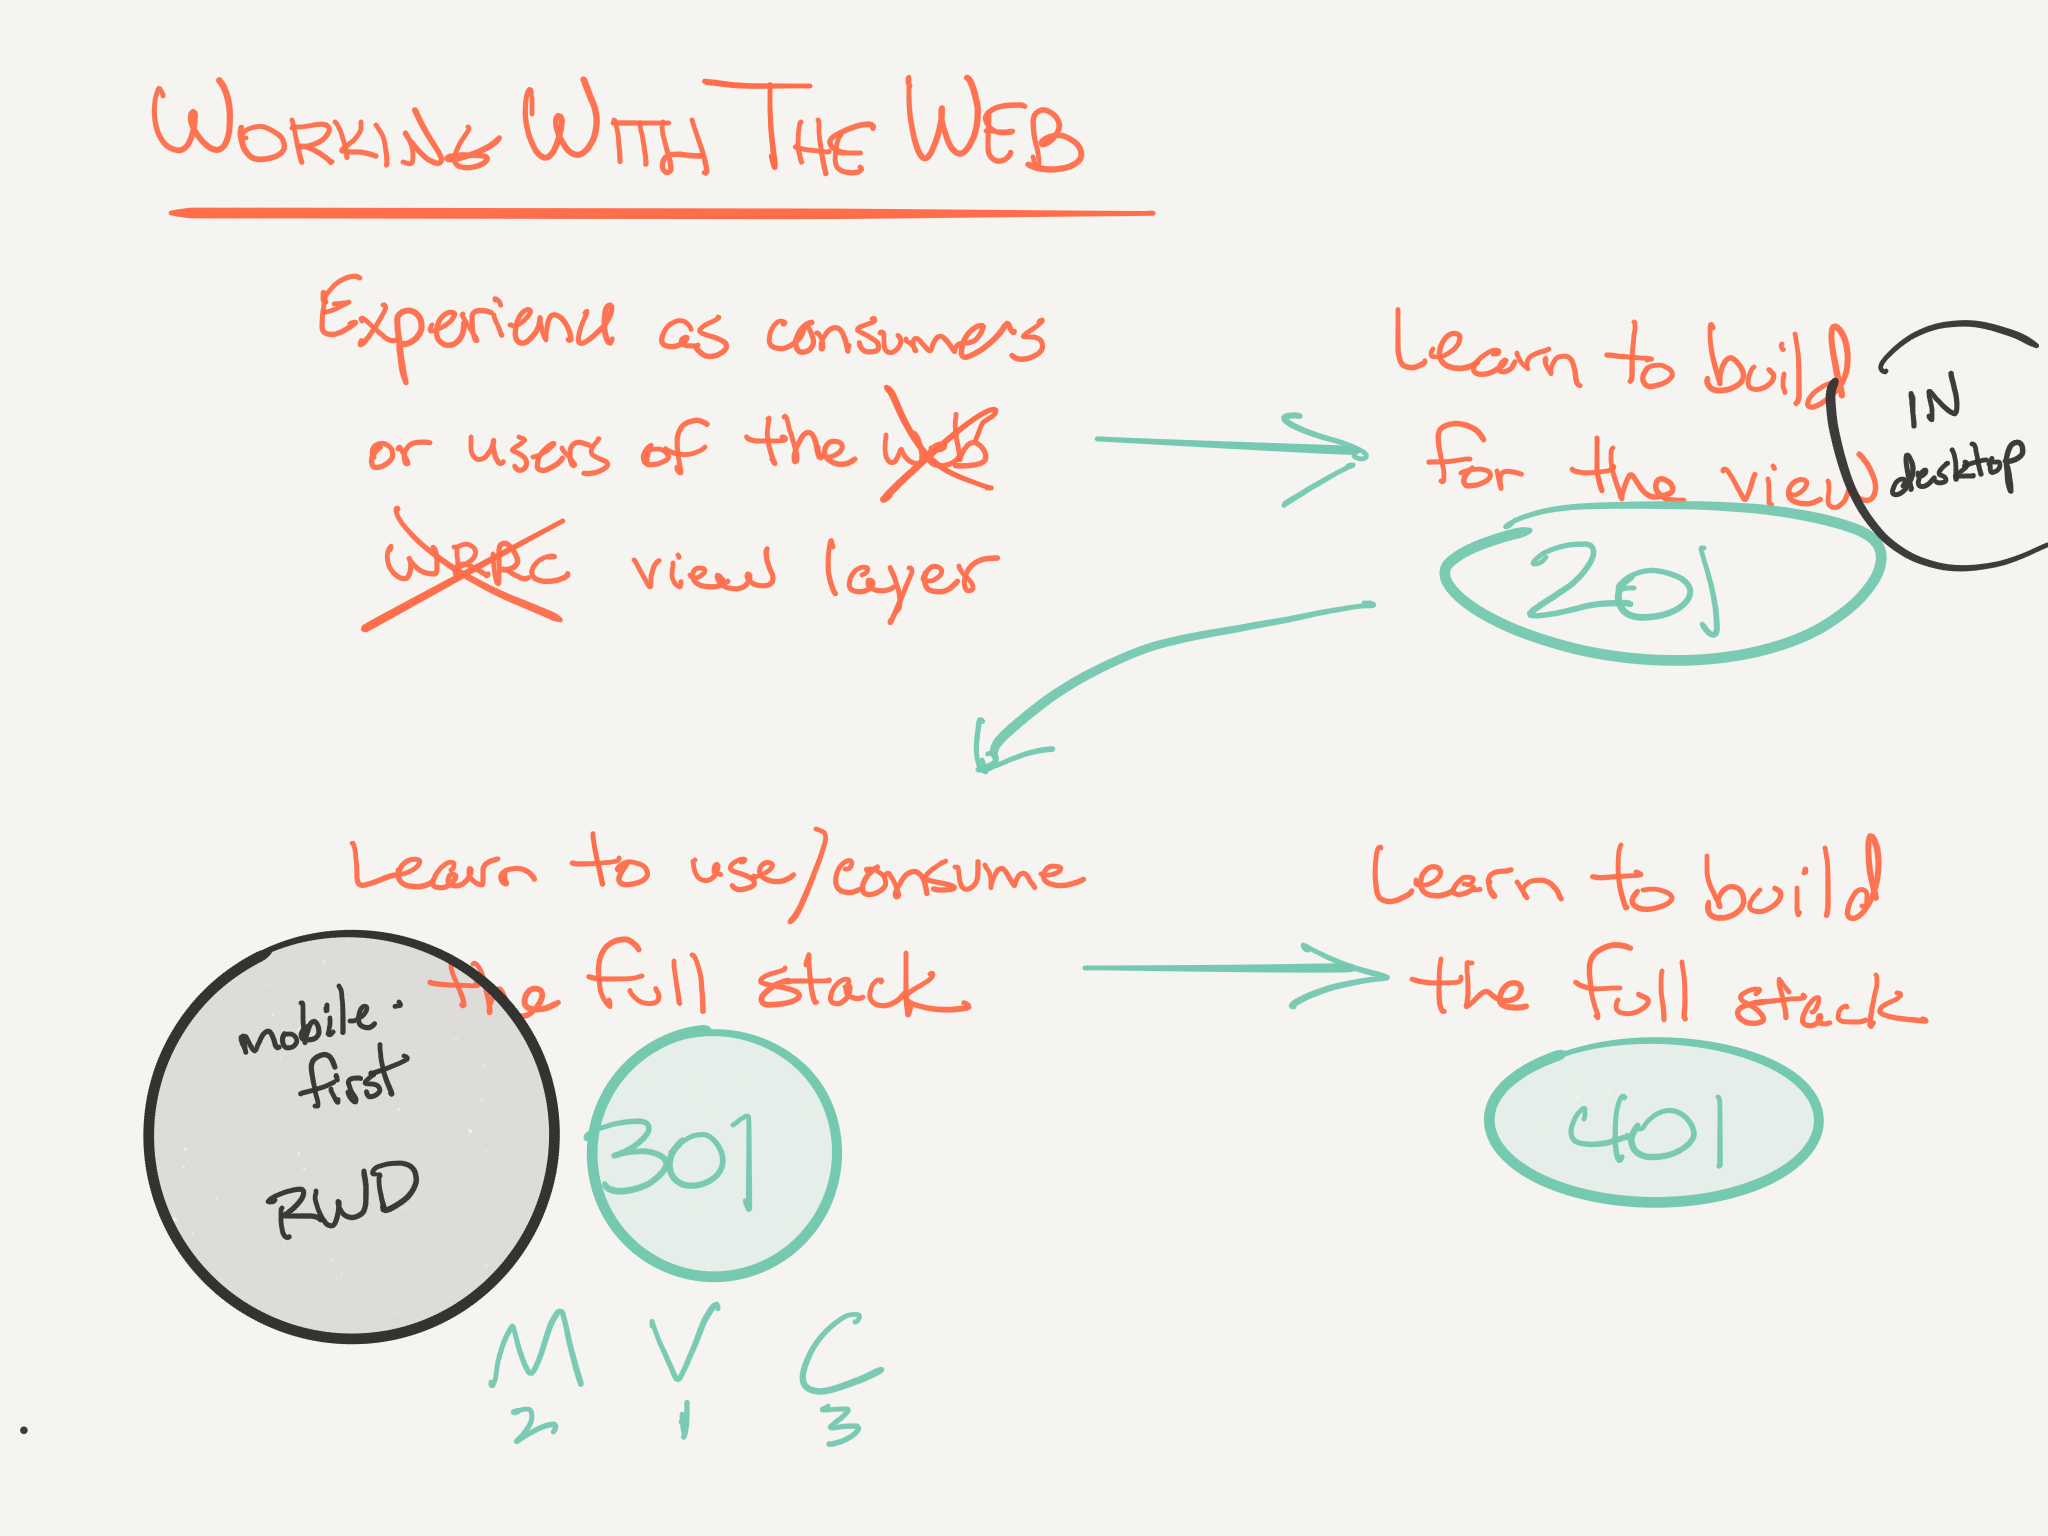 WORKING WITH THE WEB
Experiend as consumers
or users of the web
view layer
Learn to build
for the view
IN
desktop
201
Learn to use/consume
the full stack
mobile-
first
RWD
301
M V C
2 1 3
Learn to build
the full stack
401